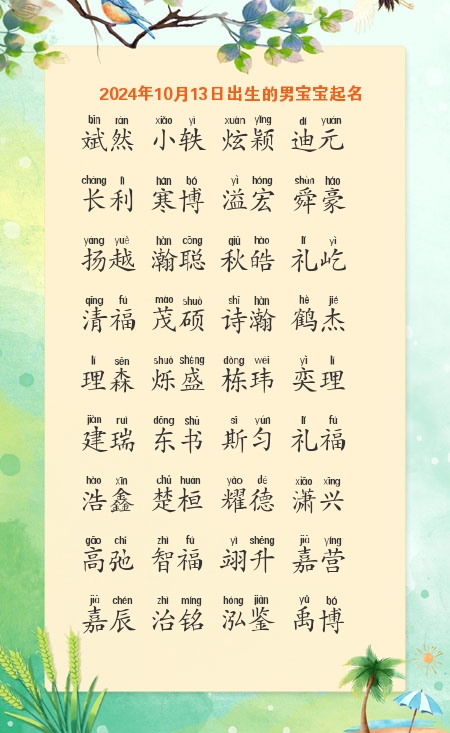 2024年10月13日出生的男宝宝起名
bīn rán xiǎo yì xuàn yǐng dí yuán
斌然 小轶 炫颖 迪元
cháng lì hán bó yì hóng shùn háo
长利 寒博 溢宏 舜豪
yáng yuè hàn cōng qiū hào lǐ yì
扬越 瀚聪 秋皓 礼屹
qīng fú mào shuò shī hàn hè jié
清福 茂硕 诗瀚 鹤杰
lǐ sēn shuò shèng dòng wěi yì lǐ
理森 烁盛 栋玮 奕理
jiàn ruì dōng shū sī yún lǐ fú
建瑞 东书 斯匀 礼福
hào xīn chǔ huán yào dé xiāo xīng
浩鑫 楚桓 耀德 潇兴
gāo chí zhì fú yì shēng jiā yíng
高弛 智福 翊升 嘉营
jiā chén zhì míng hóng jiàn yǔ bó
嘉辰 治铭 泓鉴 禹博